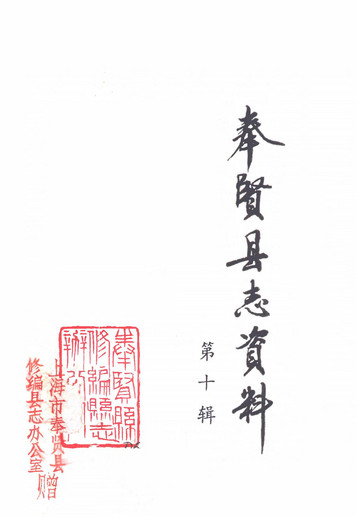 奉賢县志資料
第十辑
奉賢縣
修編縣志
辦公
上海市奉贤县
修编县志办公室赠